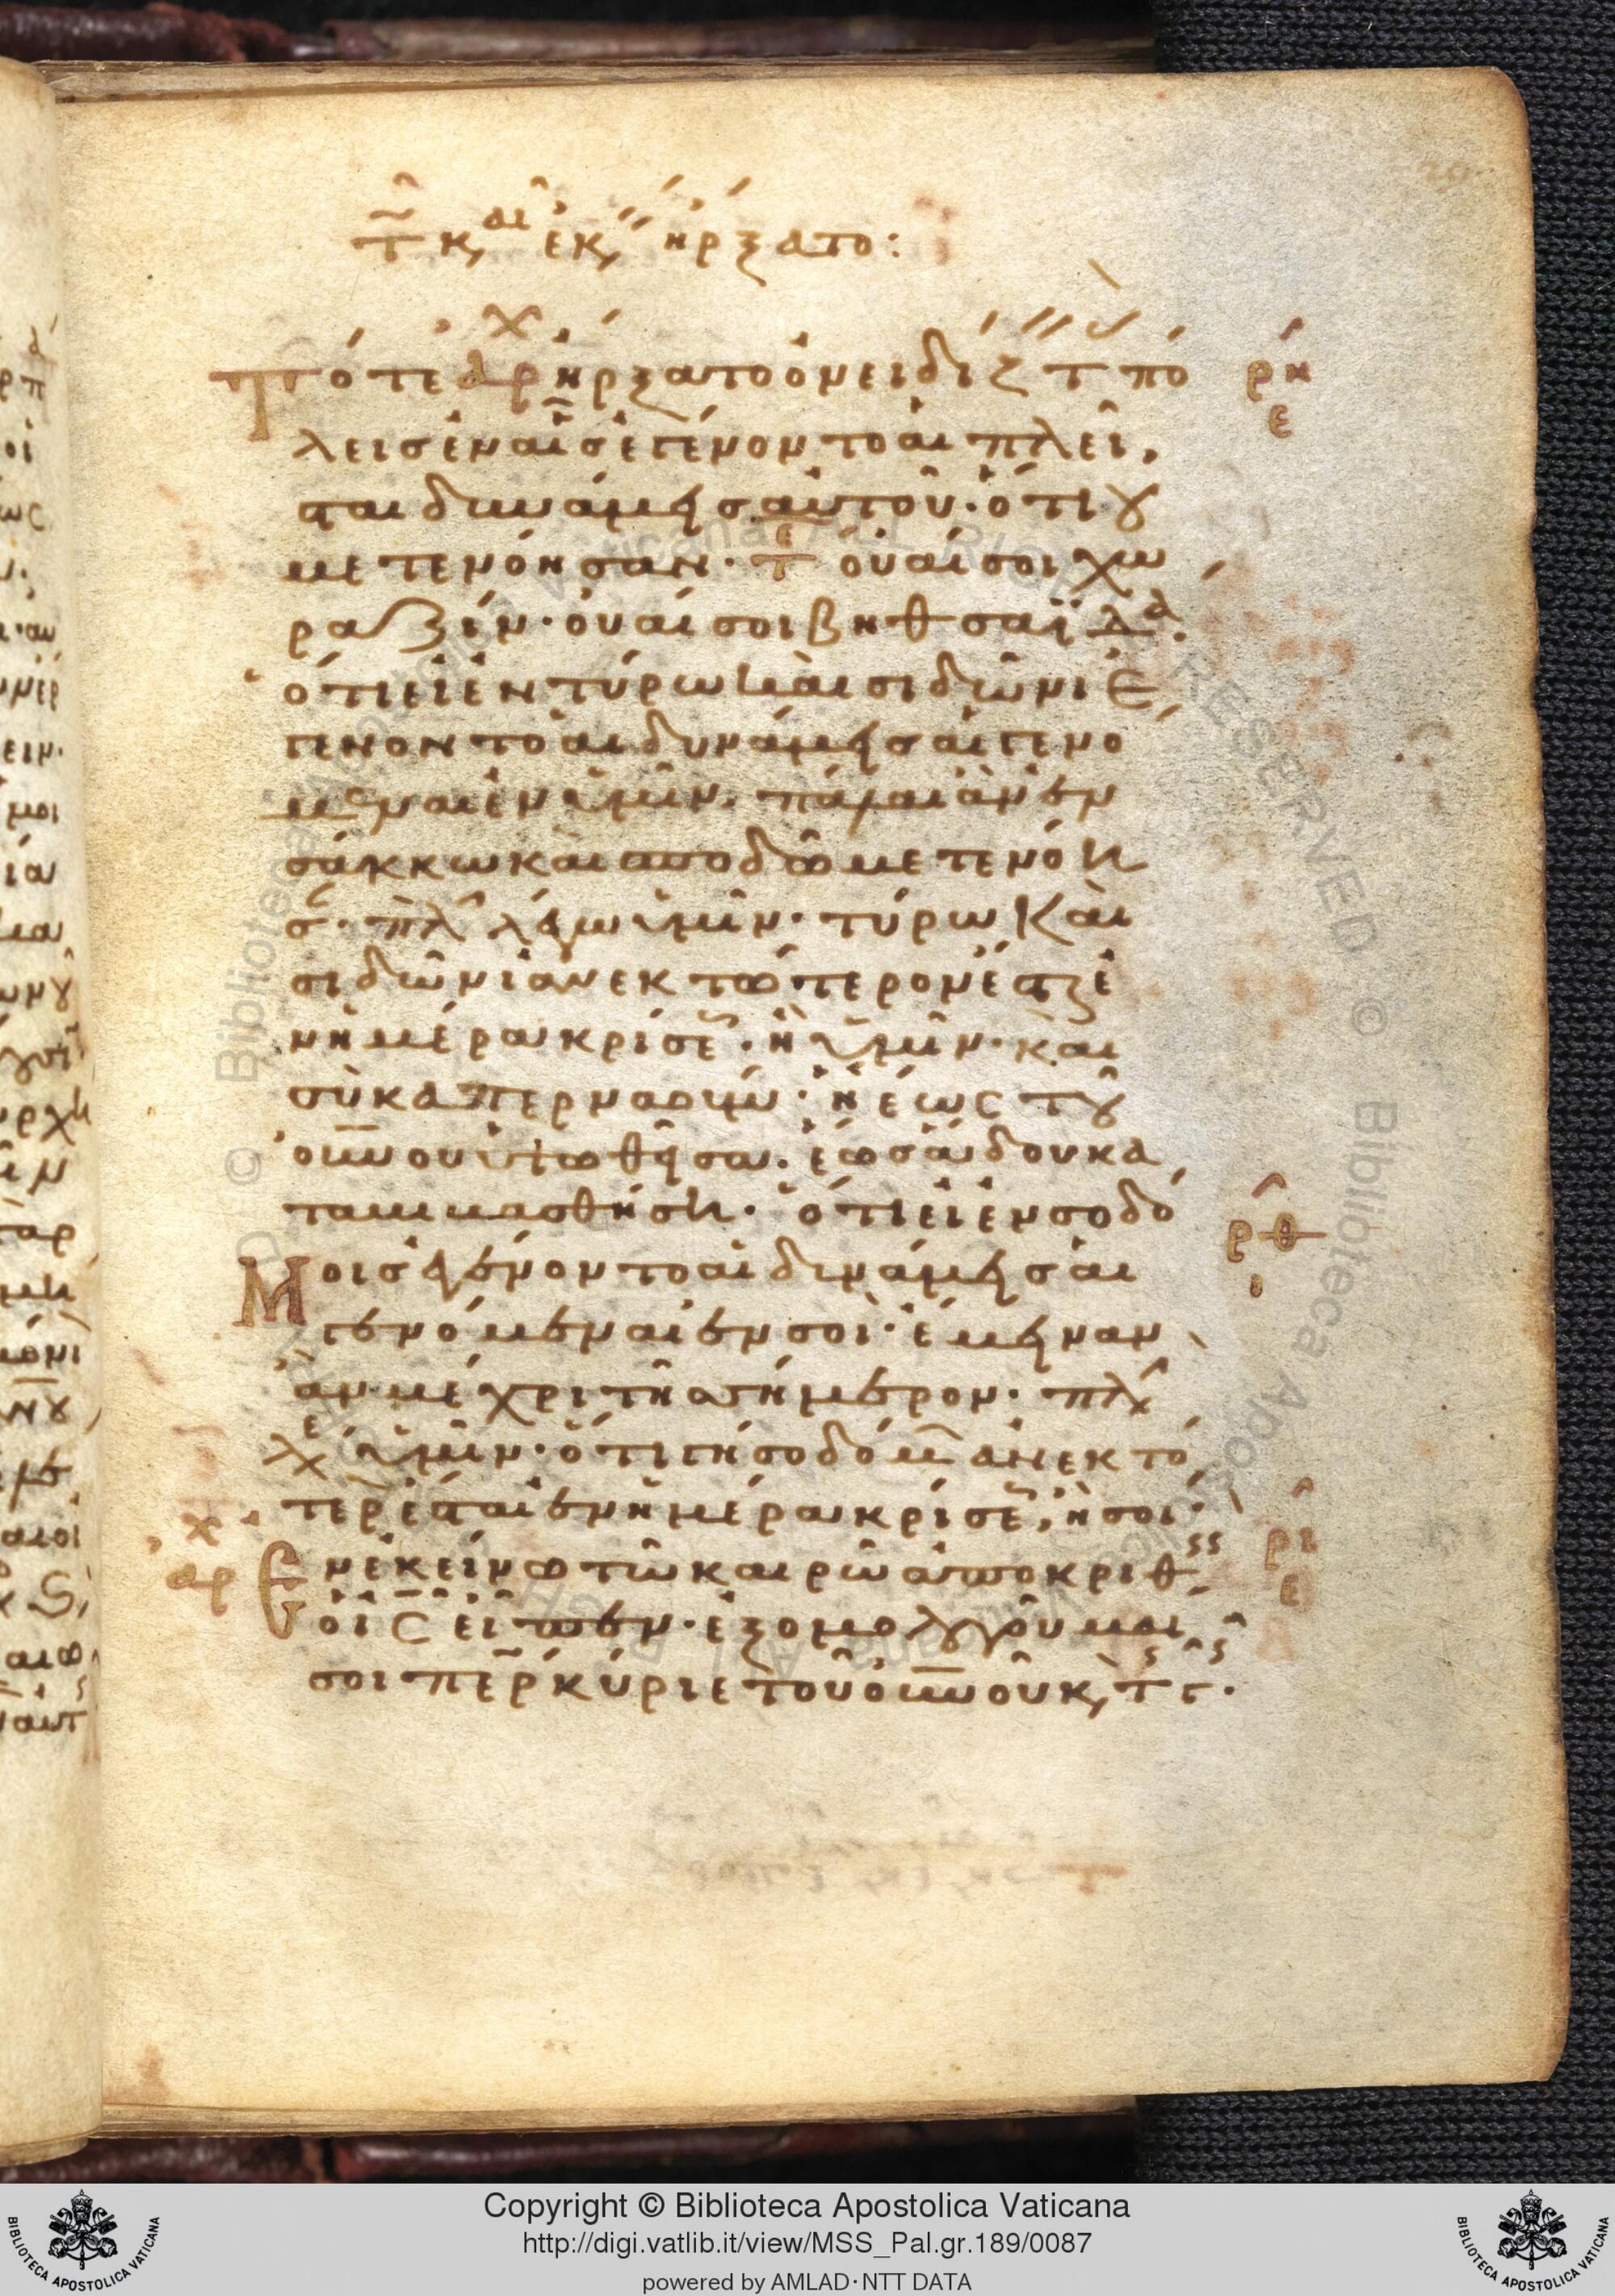 τ κ αι εκ ηρξατο:
Τότε ἀρ ἤρξατο ὀνειδίζ τ πό ρη
λεις ἐν αἷς ἐγένοντο αἱ πλεῖ, ε
σται δυνάμεις αὐτοῦ· ὅτι ου
μετενόησαν· τε οὐαί σοι χω
ραζίν· οὐαί σοι βηθσαϊδά·
ὅτι εἰ ἐν τύρω καὶ σιδῶνι ἐ
γένοντο αἱ δυνάμεις αἱ γενό
μεναι ἐν ὑμῖν· πάλαι ἂν ἐν
σάκκω καὶ σποδῶ μετενόη
σ· πλ λέγω ὑμῖν· τύρω καὶ
σιδῶνι ἀνεκτώτερον ἔσται ἐ
ν ἡμέρα κρίσε· ἢ ὑμῖν· καὶ
σὺ καπερναούμ· ἡ ἕως τοῦ
οὐνου ὑψωθεῖσα· ἕως ἅδου κα
ταβιβασθήση· ὅτι εἰ ἐν σοδό ρθ
μοις ἐγένοντο αἱ δυνάμεις αἱ ι
γενόμεναι ἐν σοὶ· ἔμειναν
ἂν μέχρι τῆς σήμερον· πλ
λέγ ὑμῖν· ὅτι γῆ σοδόμ ἀνεκτό
τερ ἔσται ἐν ἡμέρα κρίσε, ἢ σοί·
αρ Ἐν ἐκείνω τῶ καιρῶ ἀποκριθ ρι
ὁ ις εἶπεν· ἐξομολογοῦμαι ε
σοι περ κύριε τοῦ οὐνοῦ κ, τ γ·
Copyright © Biblioteca Apostolica Vaticana
http://digi.vatlib.it/view/MSS_Pal.gr.189/0087
powered by AMLAD·NTT DATA
BIBLIOTECA APOSTOLICA VATICANA
BIBLIOTECA APOSTOLICA VATICANA